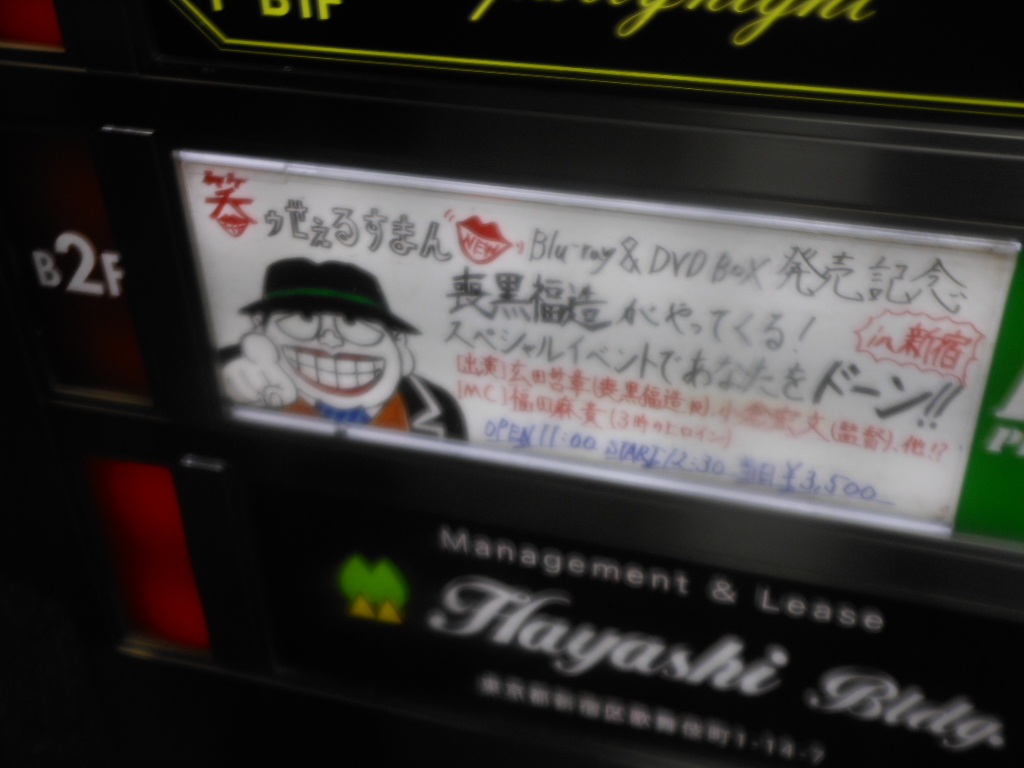 B1F
B2F
笑ゥせぇるすまん NEW Blu-ray & DVD BOX 発売記念
喪黒福造がやってくる! in新宿
スペシャルイベントであなたをドーン!!
[出演]玄田哲章(喪黒福造役)小倉宏文(監督)、他!?
[MC]福田麻貴(3時のヒロイン)
OPEN 11:00 START 12:30 当日¥3,500
Management & Lease
Hayashi Bldg.
東京都新宿区歌舞伎町1-14-7